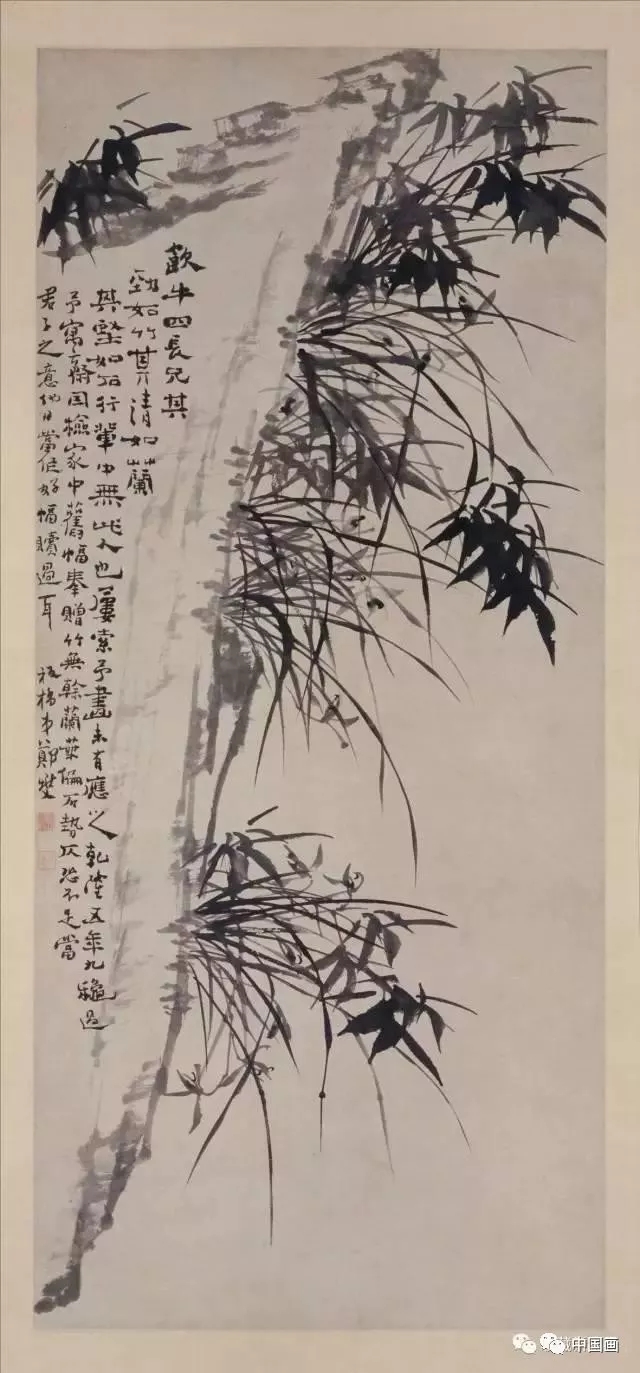 歙牛四長兄其
勁如竹其清如蘭
其堅如石行輩中無此人也屢索予畫未有應之乾隆五年九穐過
予寓齋因撿家中舊幅奉贈竹無餘蘭葉偏石勢仄恐不足當
君子之意他日當作好幅贖過耳 板橋弟鄭燮
中国画